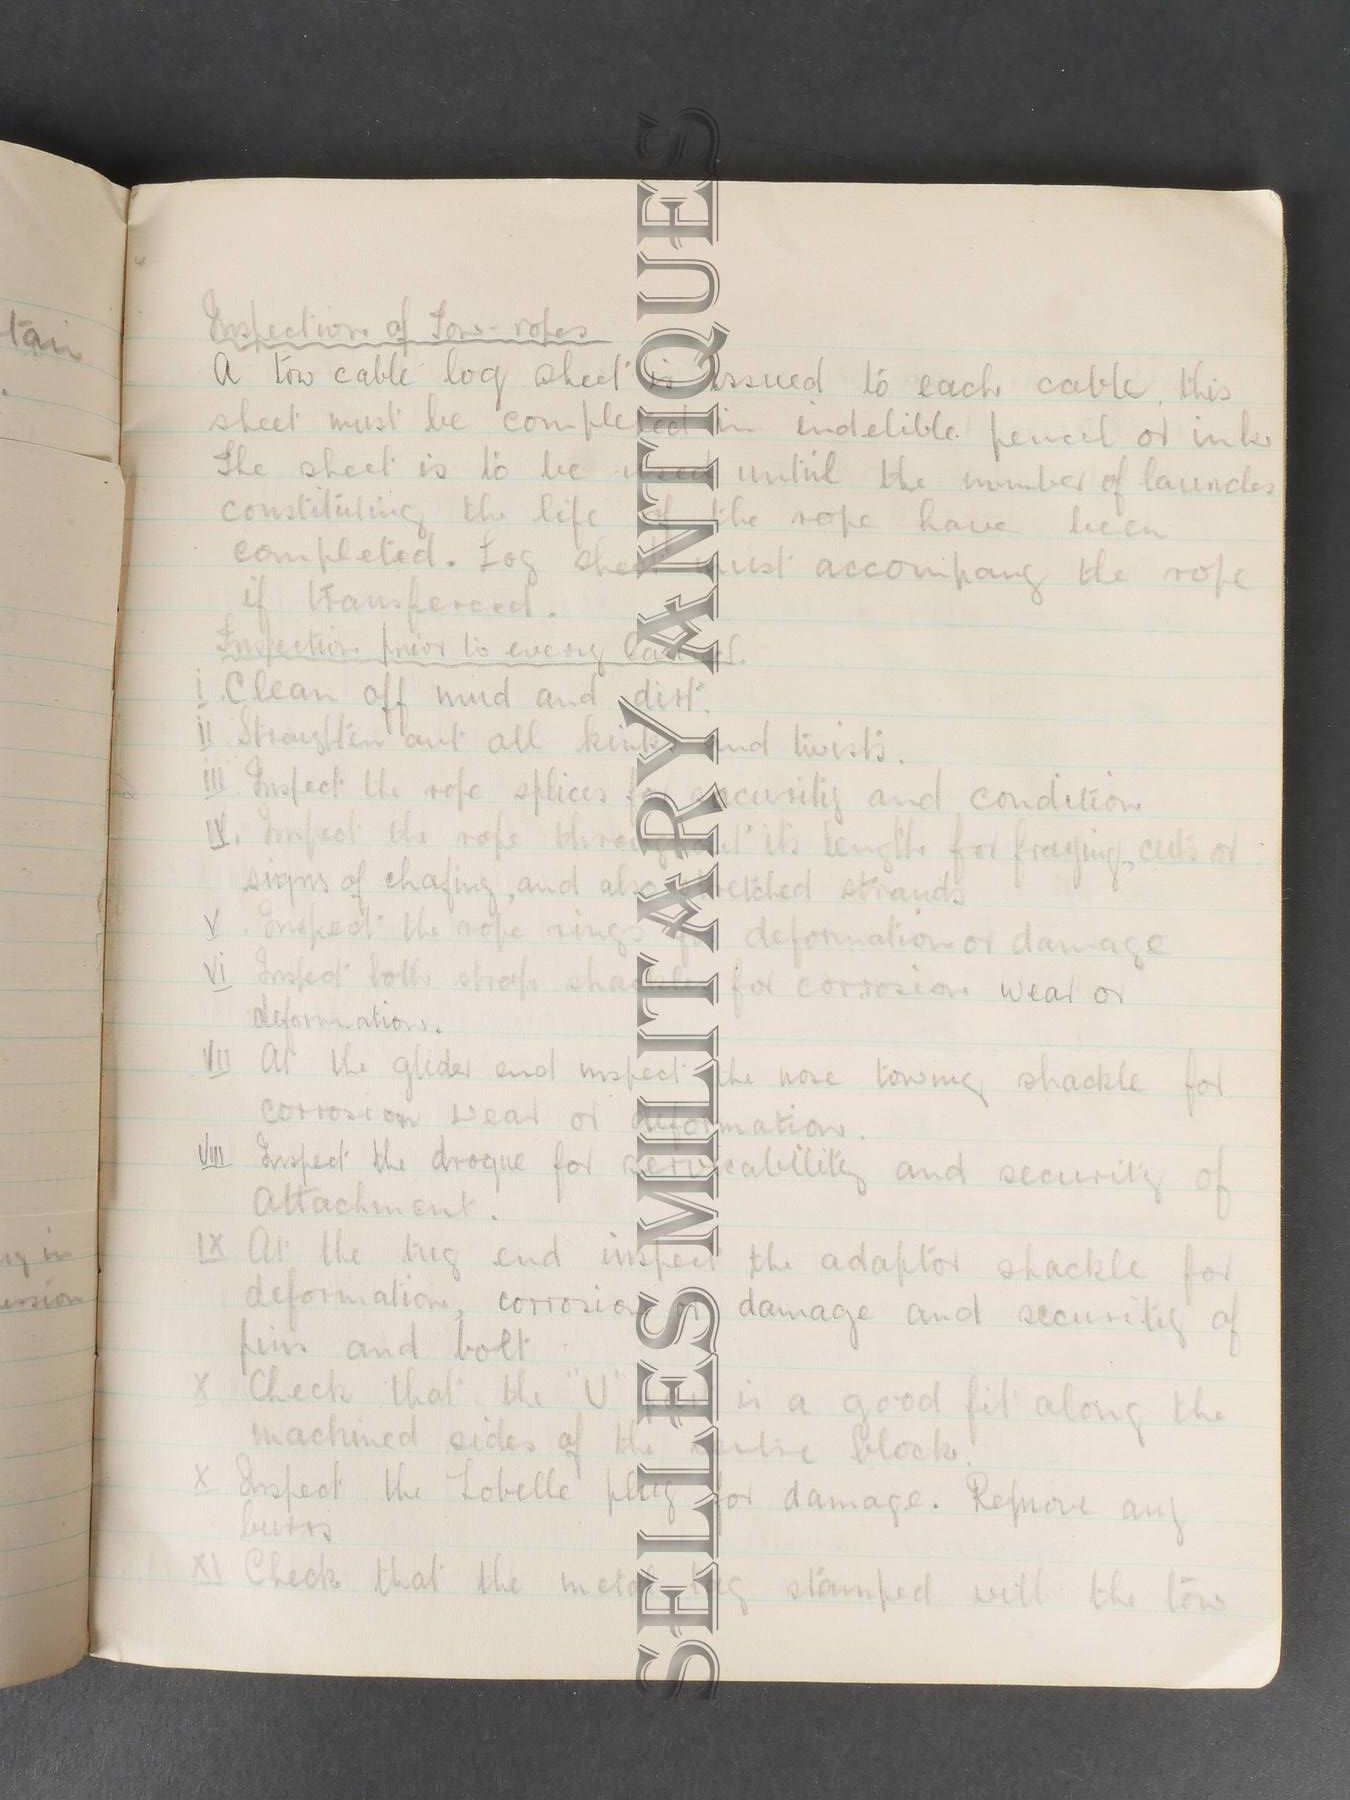 tain
ng in
ession
Inspection of Tow-ropes
A tow cable log sheet is issued to each cable, this
sheet must be completed in indelible pencil or ink
The sheet is to be used until the number of launches
constituting the life of the rope have been
completed. Log sheet must accompany the rope
if transferred.
Inspection prior to every
i Clean off mud and dirt.
ii Straighten out all kinks and twists.
iii Inspect the rope splices for security and condition
IV. Inspect the rope throughout its length for fraying, cuts or
signs of chafing, and also stretched strands
V. Inspect the rope rings for deformation or damage
Vi Inspect both strop shackles for corrosion wear or
deformation.
VII At the glider end inspect the nose towing shackle for
corrosion wear or deformation.
VIII Inspect the drogue for serviceability and security of
attachment.
IX At the tug end inspect the adaptor shackle for
deformation, corrosion or damage and security of
pins and bolt
X Check that the "U" is a good fit along the
machined sides of the centre block.
X Inspect the Lobelle plug for damage. Remove any
burrs
XI Check that the metal tag stamped with the tow
SELLES MILITARY ANTIQUES